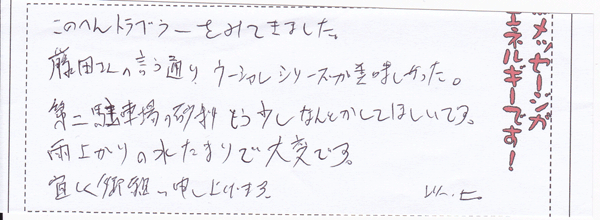 このへんトラベラーをみてきました。
藤田さんの言う通り ウーシャレシリーズが美味しかった。
第二駐車場の砂利 もう少しなんとかしてほしいです。
雨上がりの水たまりで大変です。
宜しく御 申し上げます。
メッセージが
エネルギーです！